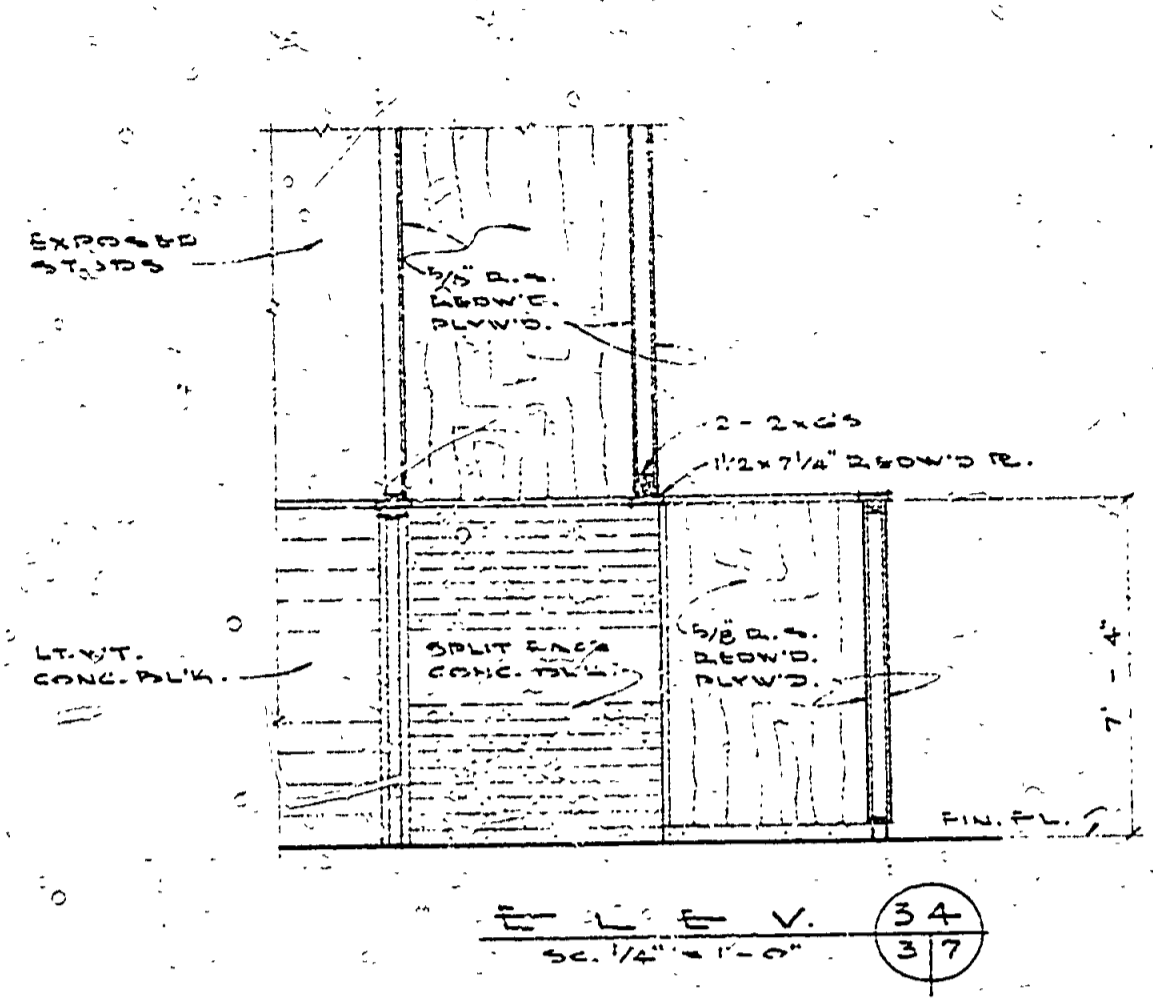 EXPOSED
STUDS
5/8" R.S.
REDW'D.
PLYW'D.
2 - 2x6'S
1 1/2 x 7 1/4" REDW'D PL.
LT. WT.
CONC. BLK.
SPLIT FACE
CONC. BLK.
5/8" R.S.
REDW'D.
PLYW'D.
7' - 4"
FIN. FL.
ELEV.
SC. 1/4" = 1'-0"
34
3 7